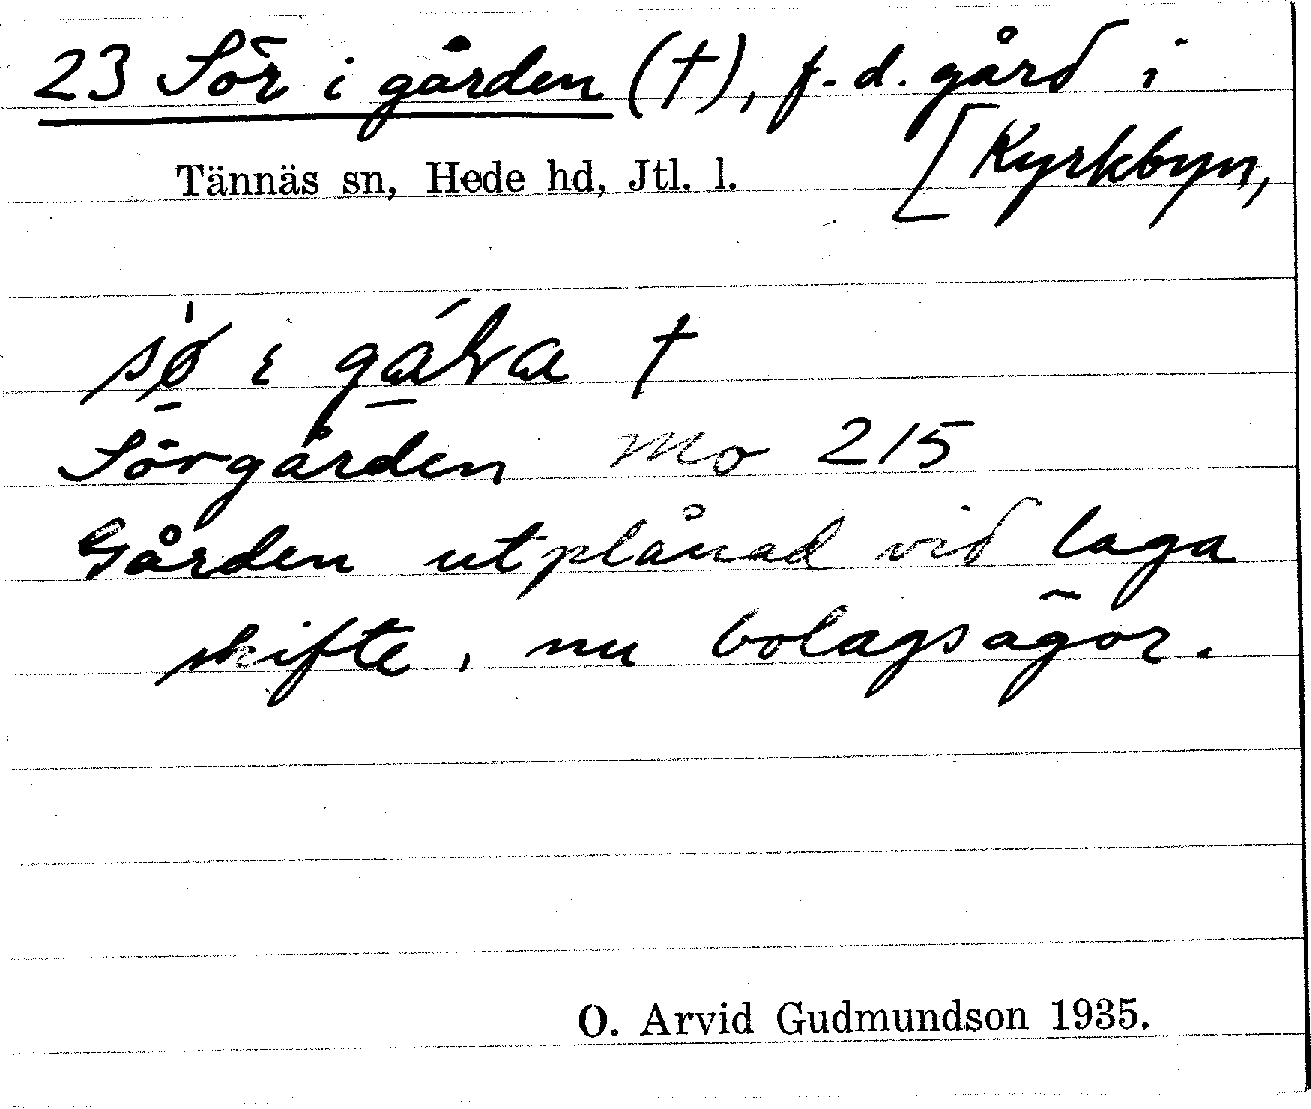 23 Sör i gården (†), f. d. gård i
[Kyrkbyn,
Tännäs sn, Hede hd, Jtl. l.
†
Sörgården Mo 215
Gården utplånad vid laga
skifte, nu bolagsägor.
O. Arvid Gudmundson 1935.